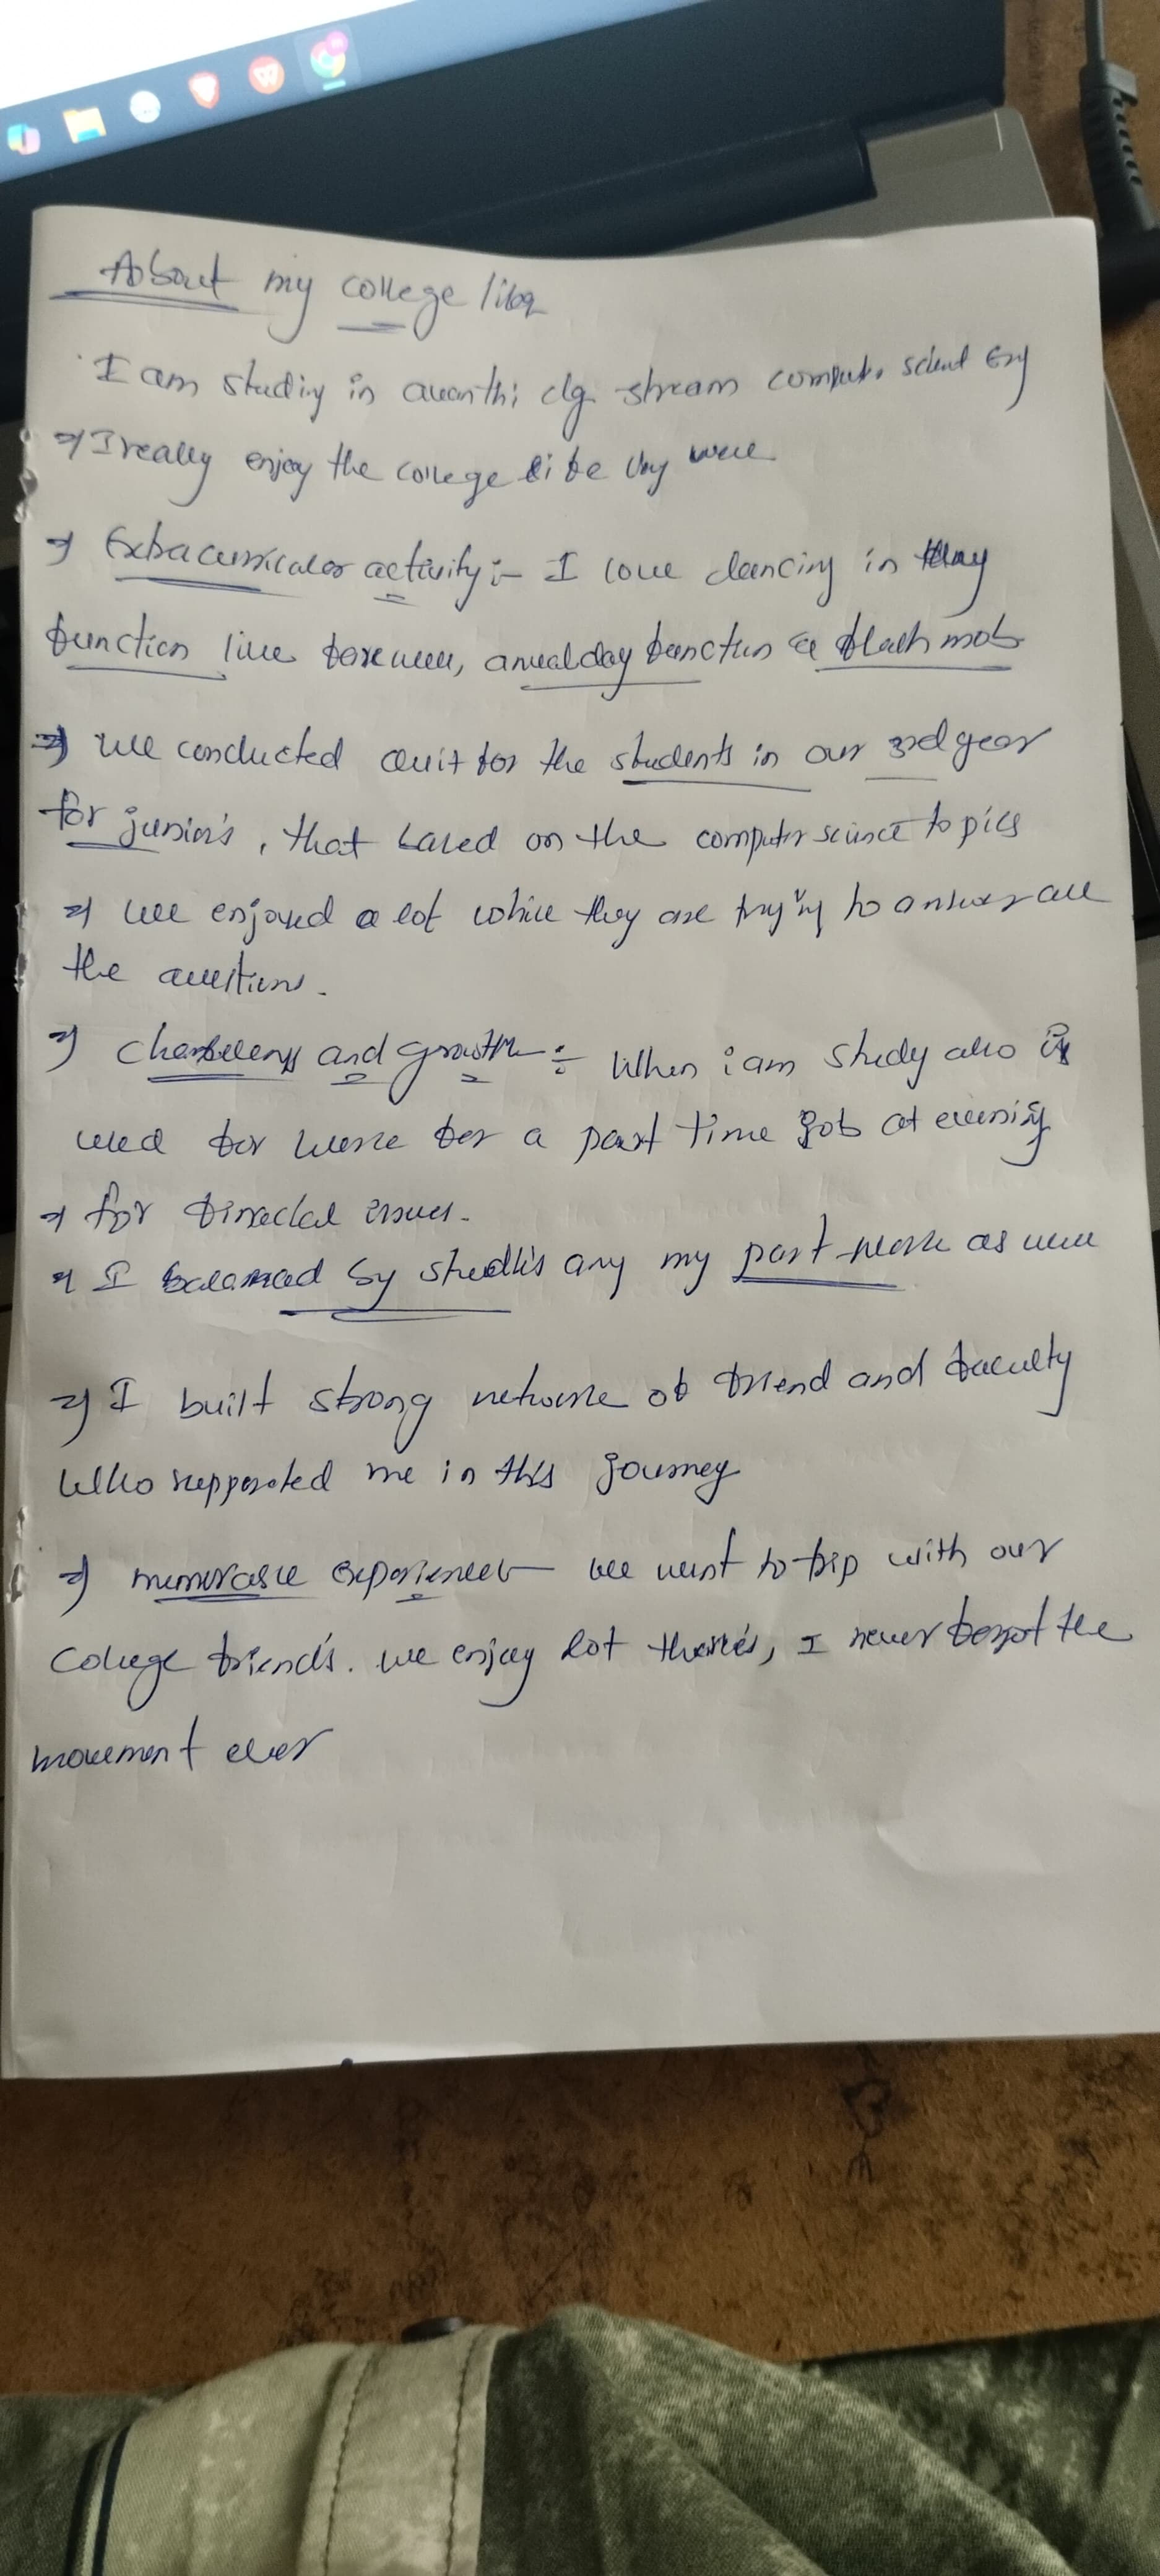 About my college life
I am studing in avanthi clg stream computer scient Eng
⇒ I really enjoy the college life very well
⇒ Extracurricular activity :- I love dancing in
function like farewell, anualday function & flash mob
⇒ we conducted quiz for the students in our 3rd year
for junior's, that based on the computer science topics
⇒ we enjoyed a lot while they are trying to answer all
the questions.
⇒ and growth :- When i am study also
used for work for a part time job at evening
⇒ for issues.
⇒ I balanced by studies any my part work as well
⇒ I built strong network of friend and faculty
who supported me in this journey
⇒ memorable experiences we went to trip with our
college friend's. we enjoy lot I never forgot the
movement ever